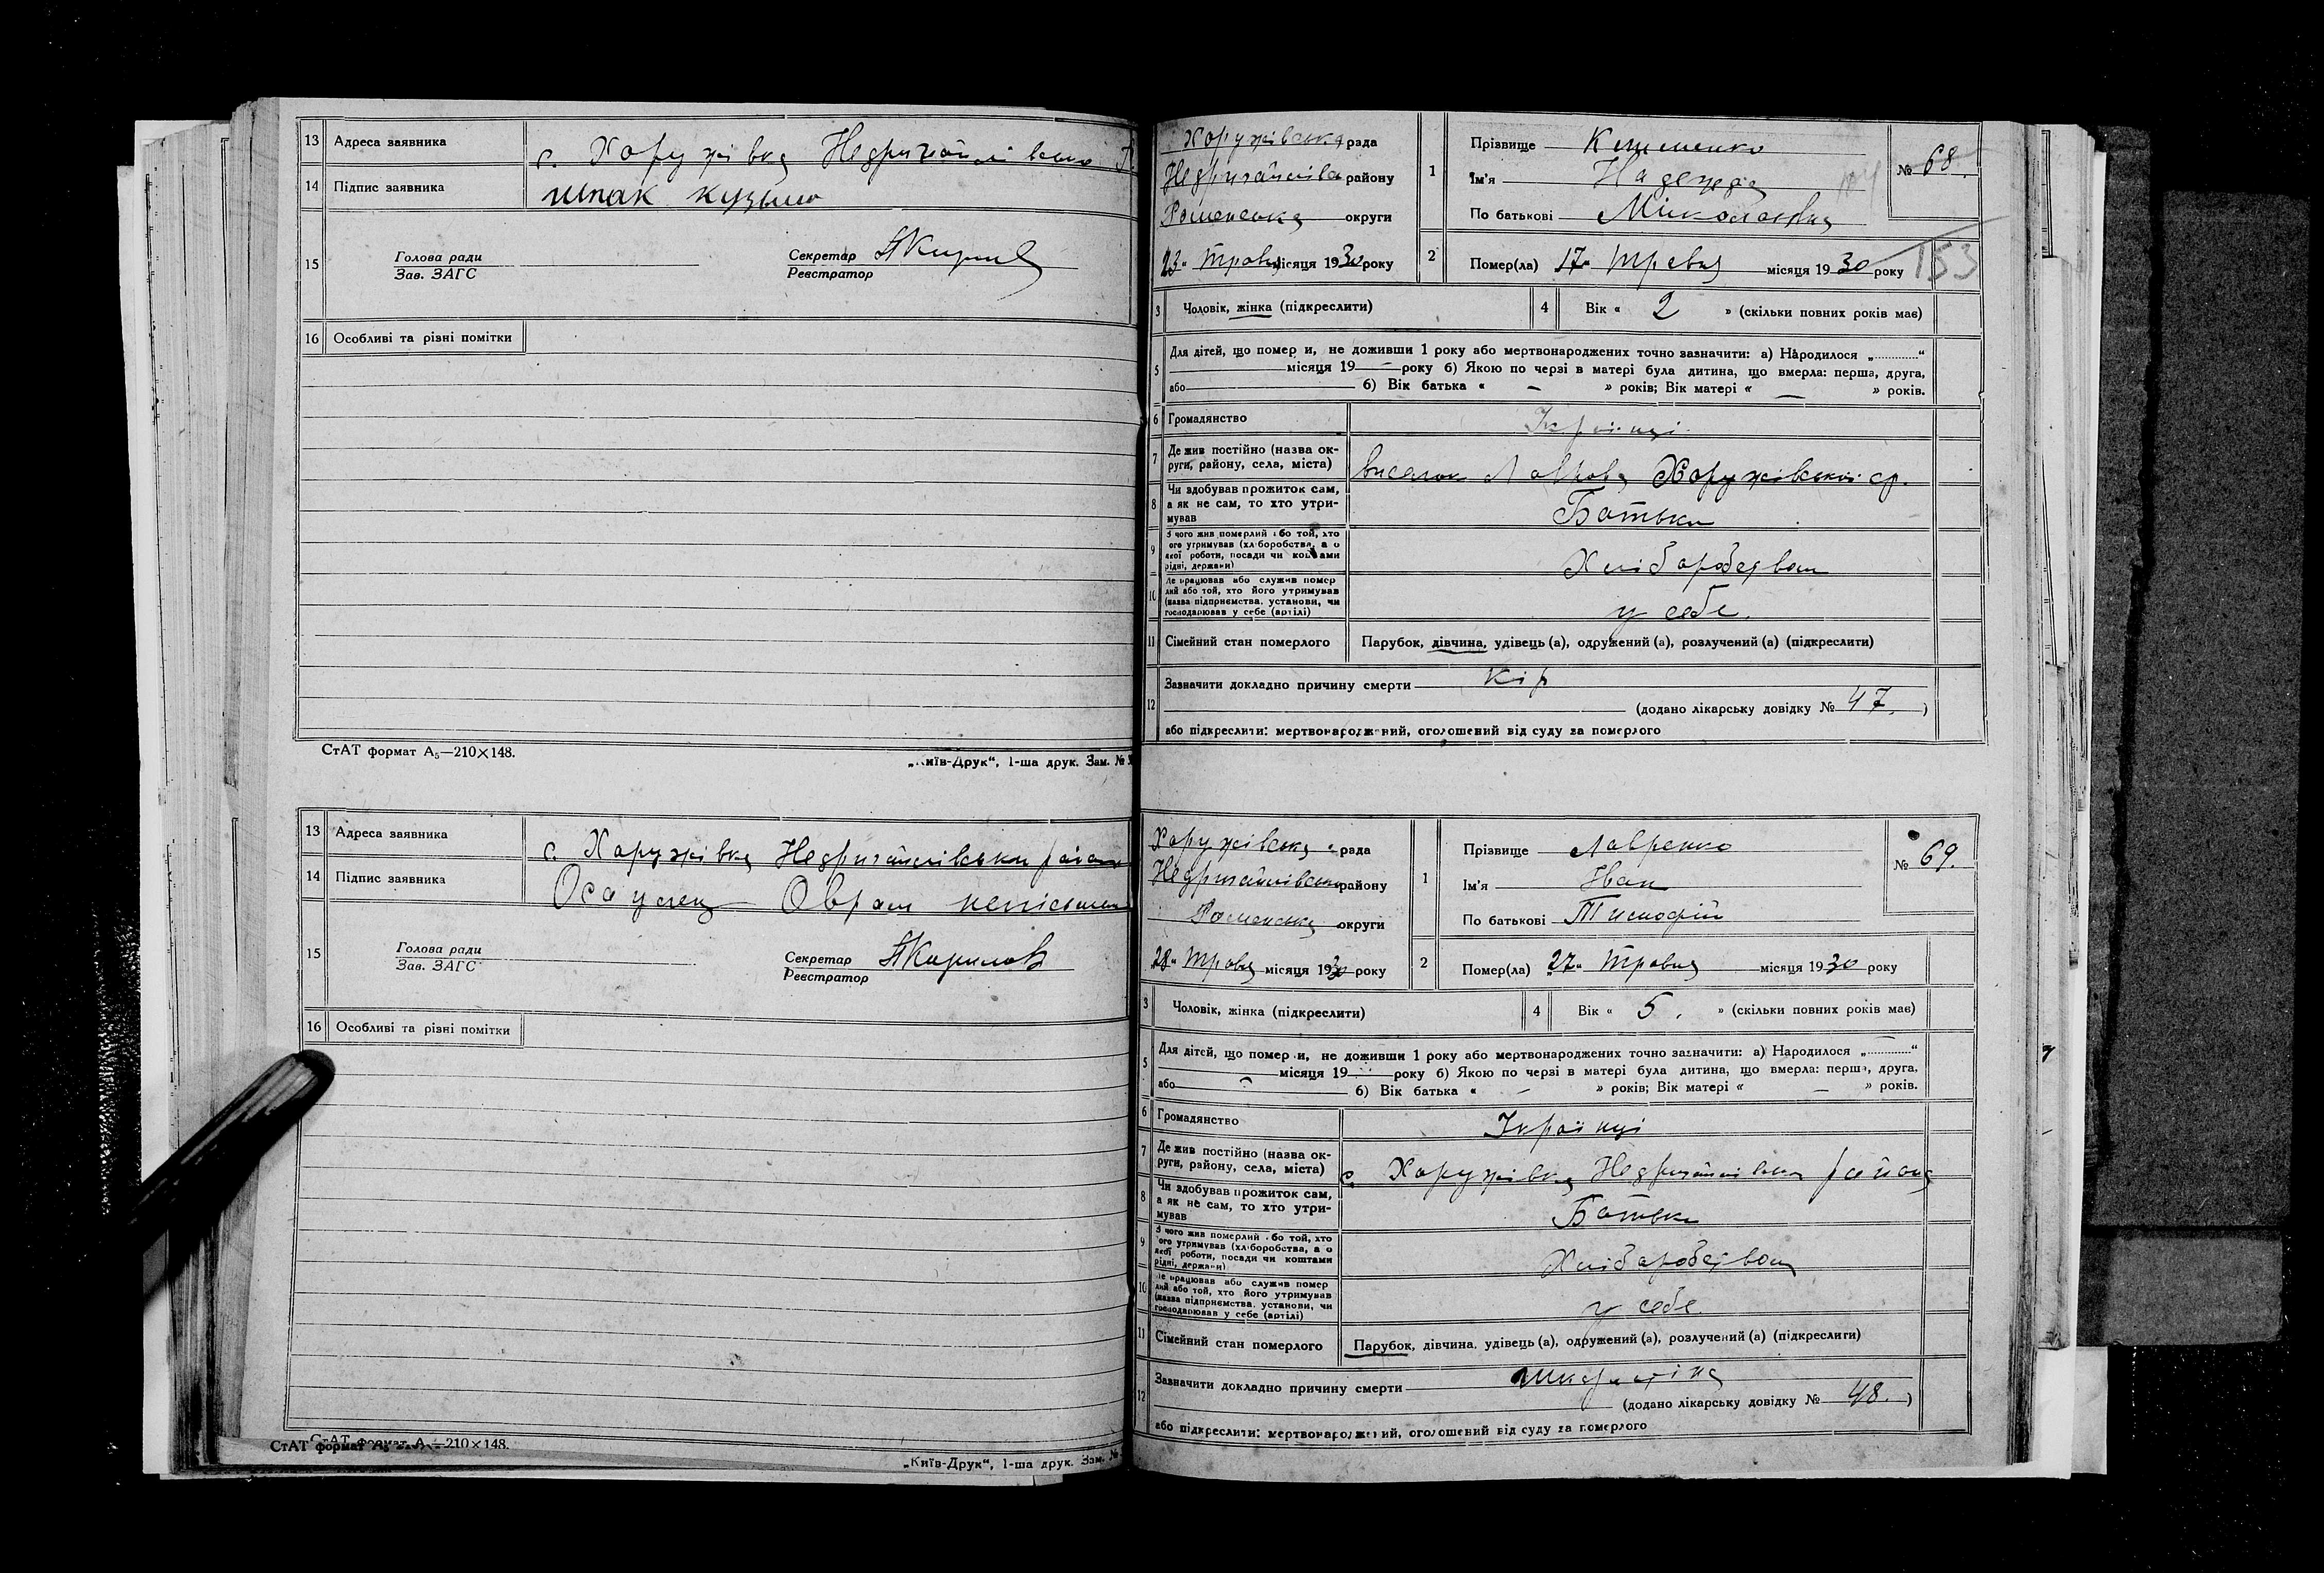 13 Адреса заявника с. Хоружівка Недригайлівськ
14 Підпис заявника шпак кузьма
15 Голова ради
Зав. ЗАГС
Секретар
Реєстратор
16 Особливі та різні помітки
СтАТ формат А₅—210×148.
„Київ-Друк“, 1-ша друк. Зам. №
13 Адреса заявника с. Хоружівка Недригайлівськи район
14 Підпис заявника Оврам неписьмен
15 Голова ради
Зав. ЗАГС
Секретар Кирилов
Реєстратор
16 Особливі та різні помітки
СтАТ формат А₅—210×148.
„Київ-Друк“, 1-ша друк. Зам. №
Хоружівська рада
Недригайлівськ району
Роменська округи
23 " Травня місяця 1930 року
1 Прізвище
Ім'я Надежда
По батькові Миколаєвна
№ 68.
153
2 Помер(ла) 17 " Травня місяця 1930 року
3 Чоловік, жінка (підкреслити) 4 Вік « 2 » (скільки повних років має)
5 Для дітей, що померли, не доживши 1 року або мертвонароджених точно зазначити: а) Народилося „............“
місяця 19 — року б) Якою по черзі в матері була дитина, що вмерла: перша, друга,
або 6) Вік батька « – » років; Вік матері « – » років.
6 Громадянство Українці
7 Де жив постійно (назва округи, району, села, міста) виселок Лаврова Хоружівської ср.
8 Чи здобував прожиток сам, а як не сам, то хто утримував Батьки
9 З чого жив померлий або той, хто його утримував (хліборобства, а о якої роботи, посади чи коштами рідні, держави) Хліборобства
10 Де працював або служив померлий або той, хто його утримував (назва підприємства, установи, чи господарював у себе (артілі) у себе.
11 Сімейний стан померлого Парубок, дівчина, удівець (а), одружений (а), розлучений (а) (підкреслити)
12 Зазначити докладно причину смерти Кір
(додано лікарську довідку № 47. )
або підкреслити: мертвонароджений, оголошений від суду за померлого
Хоружівська рада
Недригайлівськ району
Роменська округи
28 " Травня місяця 1930 року
1 Прізвище Лавренко
Ім'я Іван
По батькові Тимофій
№ 69.
2 Помер(ла) „27 " Травня місяця 1930 року
3 Чоловік, жінка (підкреслити) 4 Вік « 5. » (скільки повних років має)
5 Для дітей, що померли, не доживши 1 року або мертвонароджених точно зазначити: а) Народилося „............“
місяця 19 року б) Якою по черзі в матері була дитина, що вмерла: перша, друга,
або 6) Вік батька « – » років; Вік матері « – » років.
6 Громадянство Українці
7 Де жив постійно (назва округи, району, села, міста) с. Хоружівка Недригайлівськ района
8 Чи здобував прожиток сам, а як не сам, то хто утримував Батьки
9 З чого жив померлий або той, хто його утримував (хліборобства, а о якої роботи, посади чи коштами рідні, держави) Хліборобства
10 Де працював або служив померлий або той, хто його утримував (назва підприємства, установи, чи господарював у себе (артілі) у себе
11 Сімейний стан померлого Парубок, дівчина, удівець (а), одружений (а), розлучений (а) (підкреслити)
12 Зазначити докладно причину смерти шкарлатіна
(додано лікарську довідку № 48. )
або підкреслити: мертвонароджений, оголошений від суду за померлого